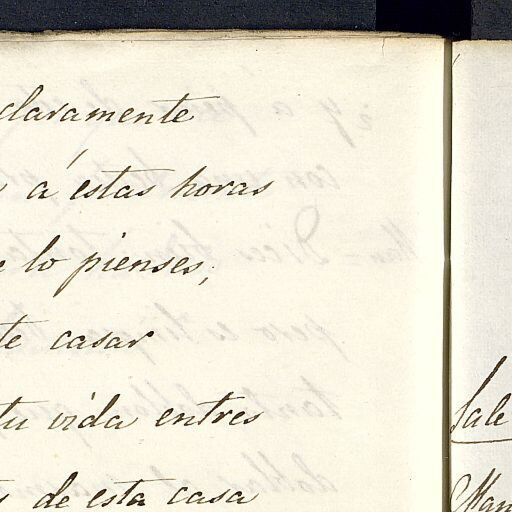 claramente
á estas horas
lo pienses,
te casar
tu vida entres
de esta casa
Sale